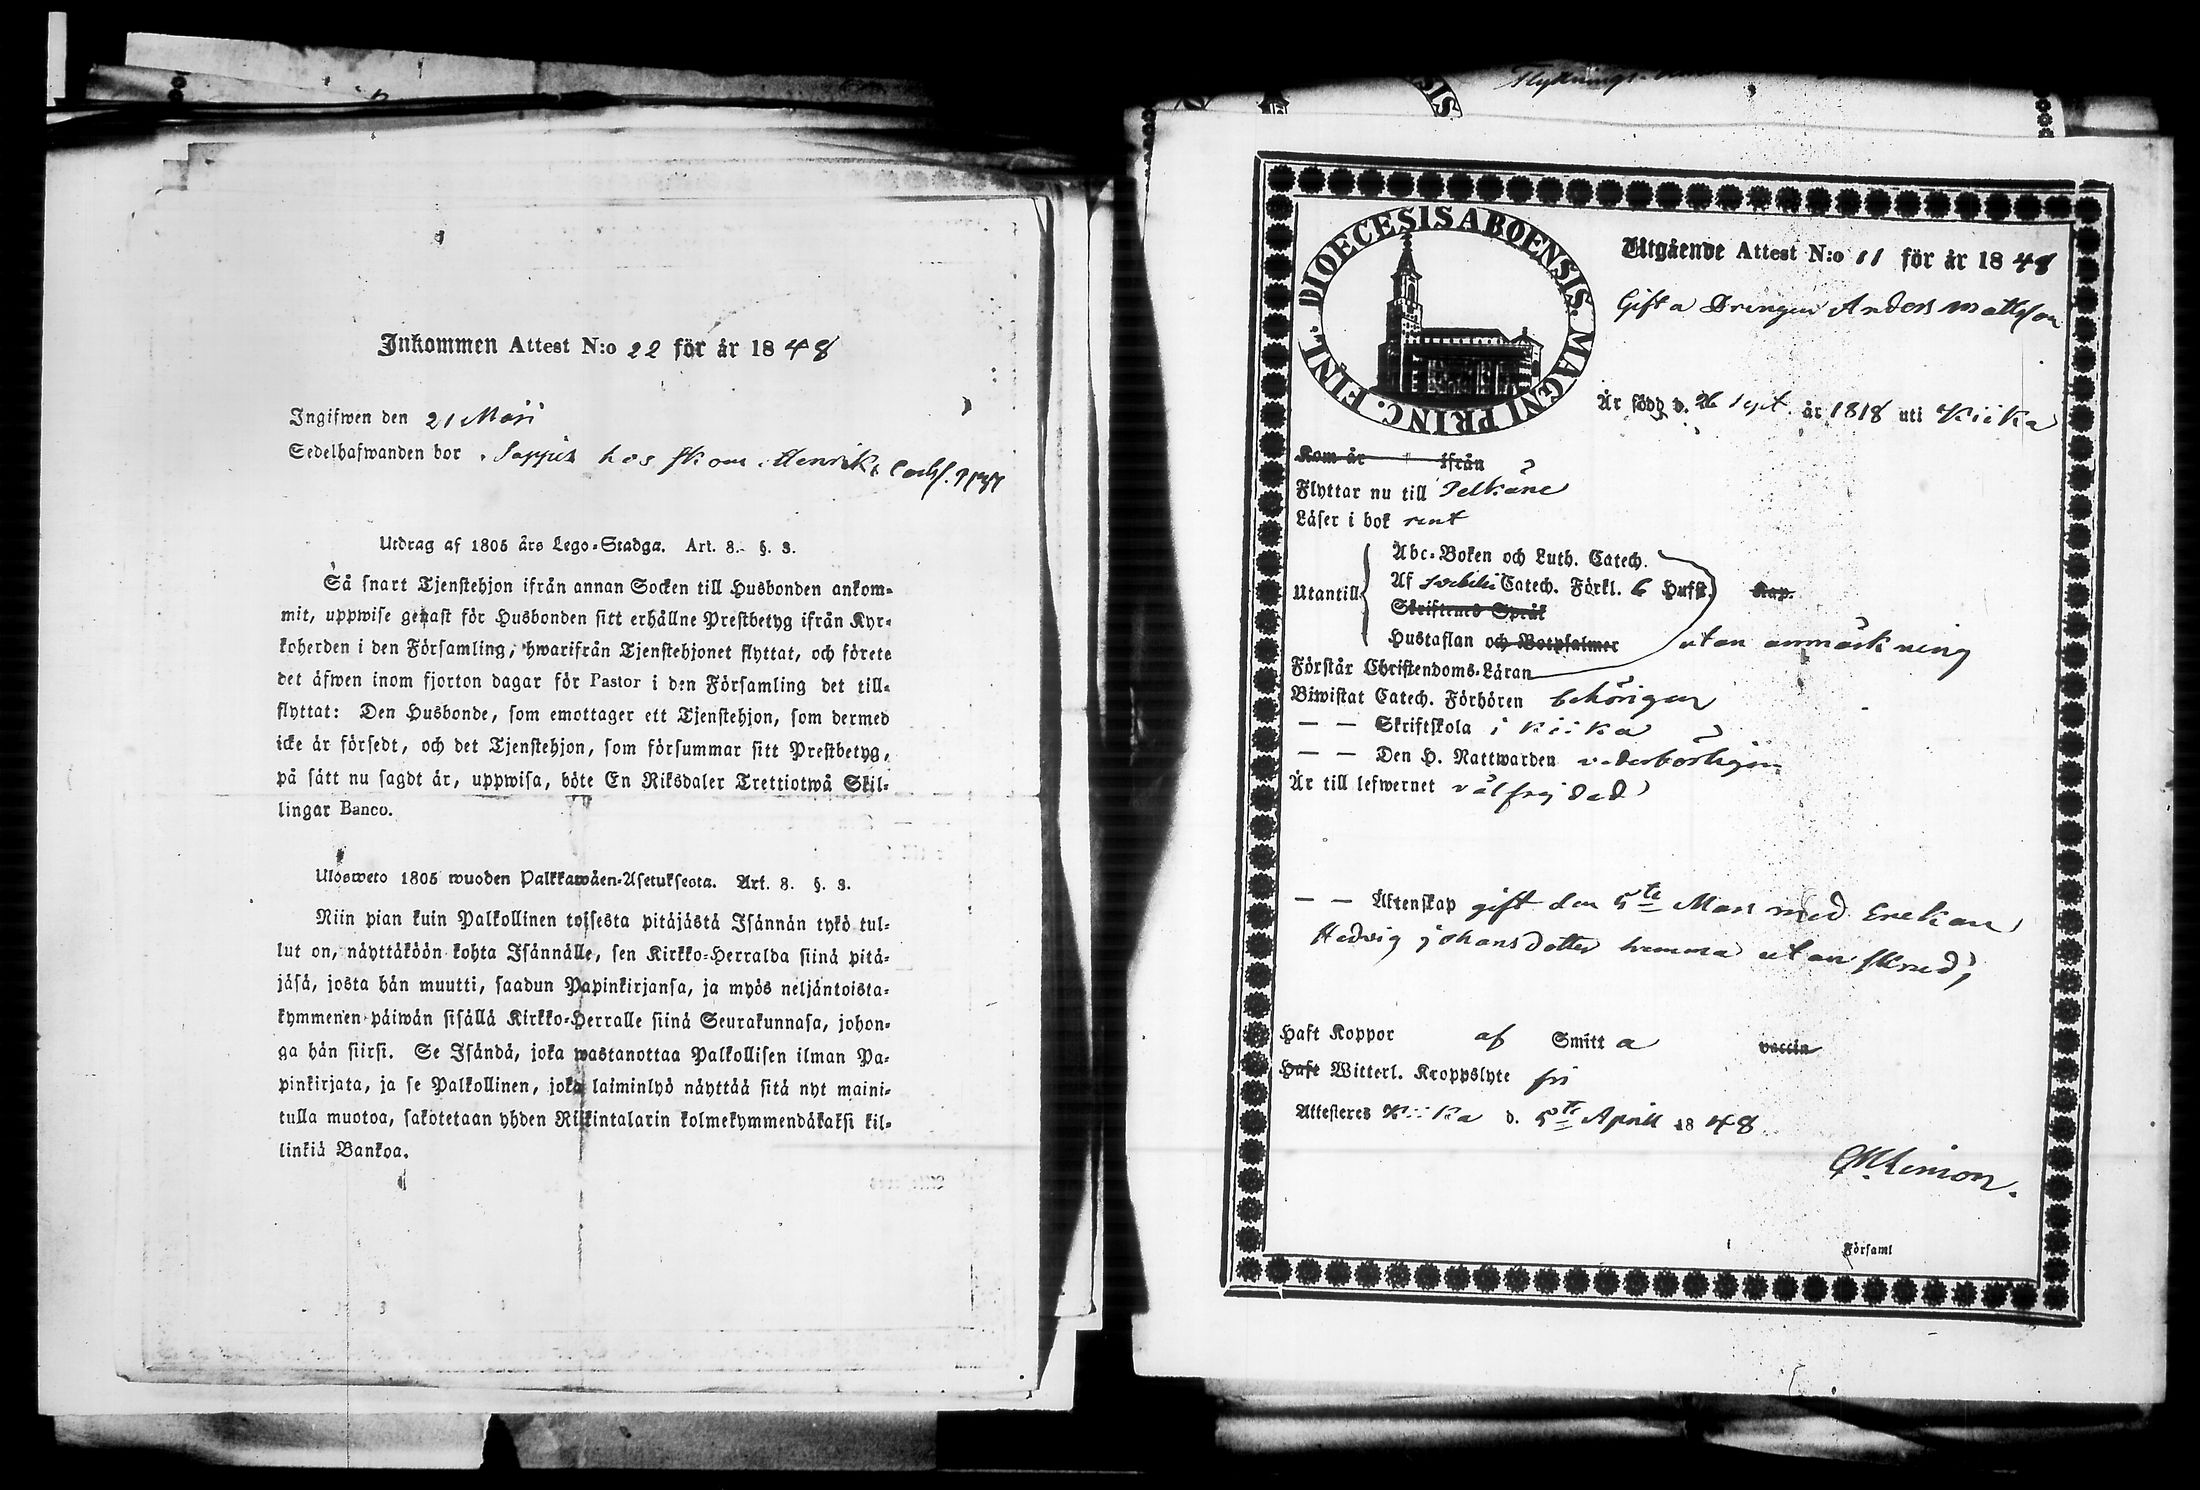 Inkommen Attest N:o 22 för år 1848
Ingifwen den 21 Maji
Sedelhafwanden bor Sappis hos Henrik
Utdrag af 1805 års Lego-Stadga. Art. 8. §. 3.
Så snart Tjenstehjon ifrån annan Socken till Husbonden ankom-
mit, uppwise genast för Husbonden sitt erhållne Prestbetyg ifrån Kyr-
koherden i den Församling, hwarifrån Tjenstehjonet flyttat, och förete
det äfwen inom fjorton dagar för Pastor i den Församling det till-
flyttat: Den Husbonde, som emottager ett Tjenstehjon, som dermed
icke är försedt, och det Tjenstehjon, som försummar sitt Prestbetyg,
på sätt nu sagdt är, uppwisa, böte En Riksdaler Trettiotwå Skil-
lingar Banco.
Ulosweto 1805 wuoden Palkkawäen-Asetuksesta. Art. 8. §. 3.
Niin pian kuin Palkollinen toisesta pitäjästä Isännän tykö tul-
lut on, näyttäköön kohta Isännälle, sen Kirkko-Herralda siinä pitä-
jäsä, josta hän muutti, saadun Papinkirjansa, ja myös neljäntoista-
kymmenen päiwän sisällä Kirkko-Herralle siinä Seurakunnasa, johon-
ga hän siirsi. Se Isändä, joka wastanottaa Palkollisen ilman Pa-
pinkirjata, ja se Palkollinen, joka laiminlyö näyttää sitä nyt maini-
tulla muotoa, sakotetaan yhden Riikintalarin kolmekymmendäkaksi kil-
linkiä Bankoa.
DIOECESIS ABOENSIS. MAGNI PRINC. FINL.
Utgående Attest N:o 11 för år 1848
Gifta Drengen Anders Mattsson
Är född d. 26 Sept. år 1818 uti Kiika
Kom år ifrån
Flyttar nu till Pelkäne
Läser i bok rent
Utantill
Abc-Boken och Luth. Catech.
Af Svebelii Catech. Förkl. 6 Hufst. Kap.
Skriftenes Språk
Hustaflan och Botpsalmer utan anmärkning
Förstår Christendoms-Läran
Biwistat Catech. Förhören behörigen
— — Skriftskola i Kiika
— — Den H. Nattwarden vederbörligen
Är till lefwernet välfrejdad
— — Äktenskap gift den 5te Mars med Enekan
Hedvig Johansdotter hemma utan
Haft Koppor af Smitta vaccin
Haft Witterl. Kroppslyte fri
Attesteres Kiika d. 5te April 1848
Församl